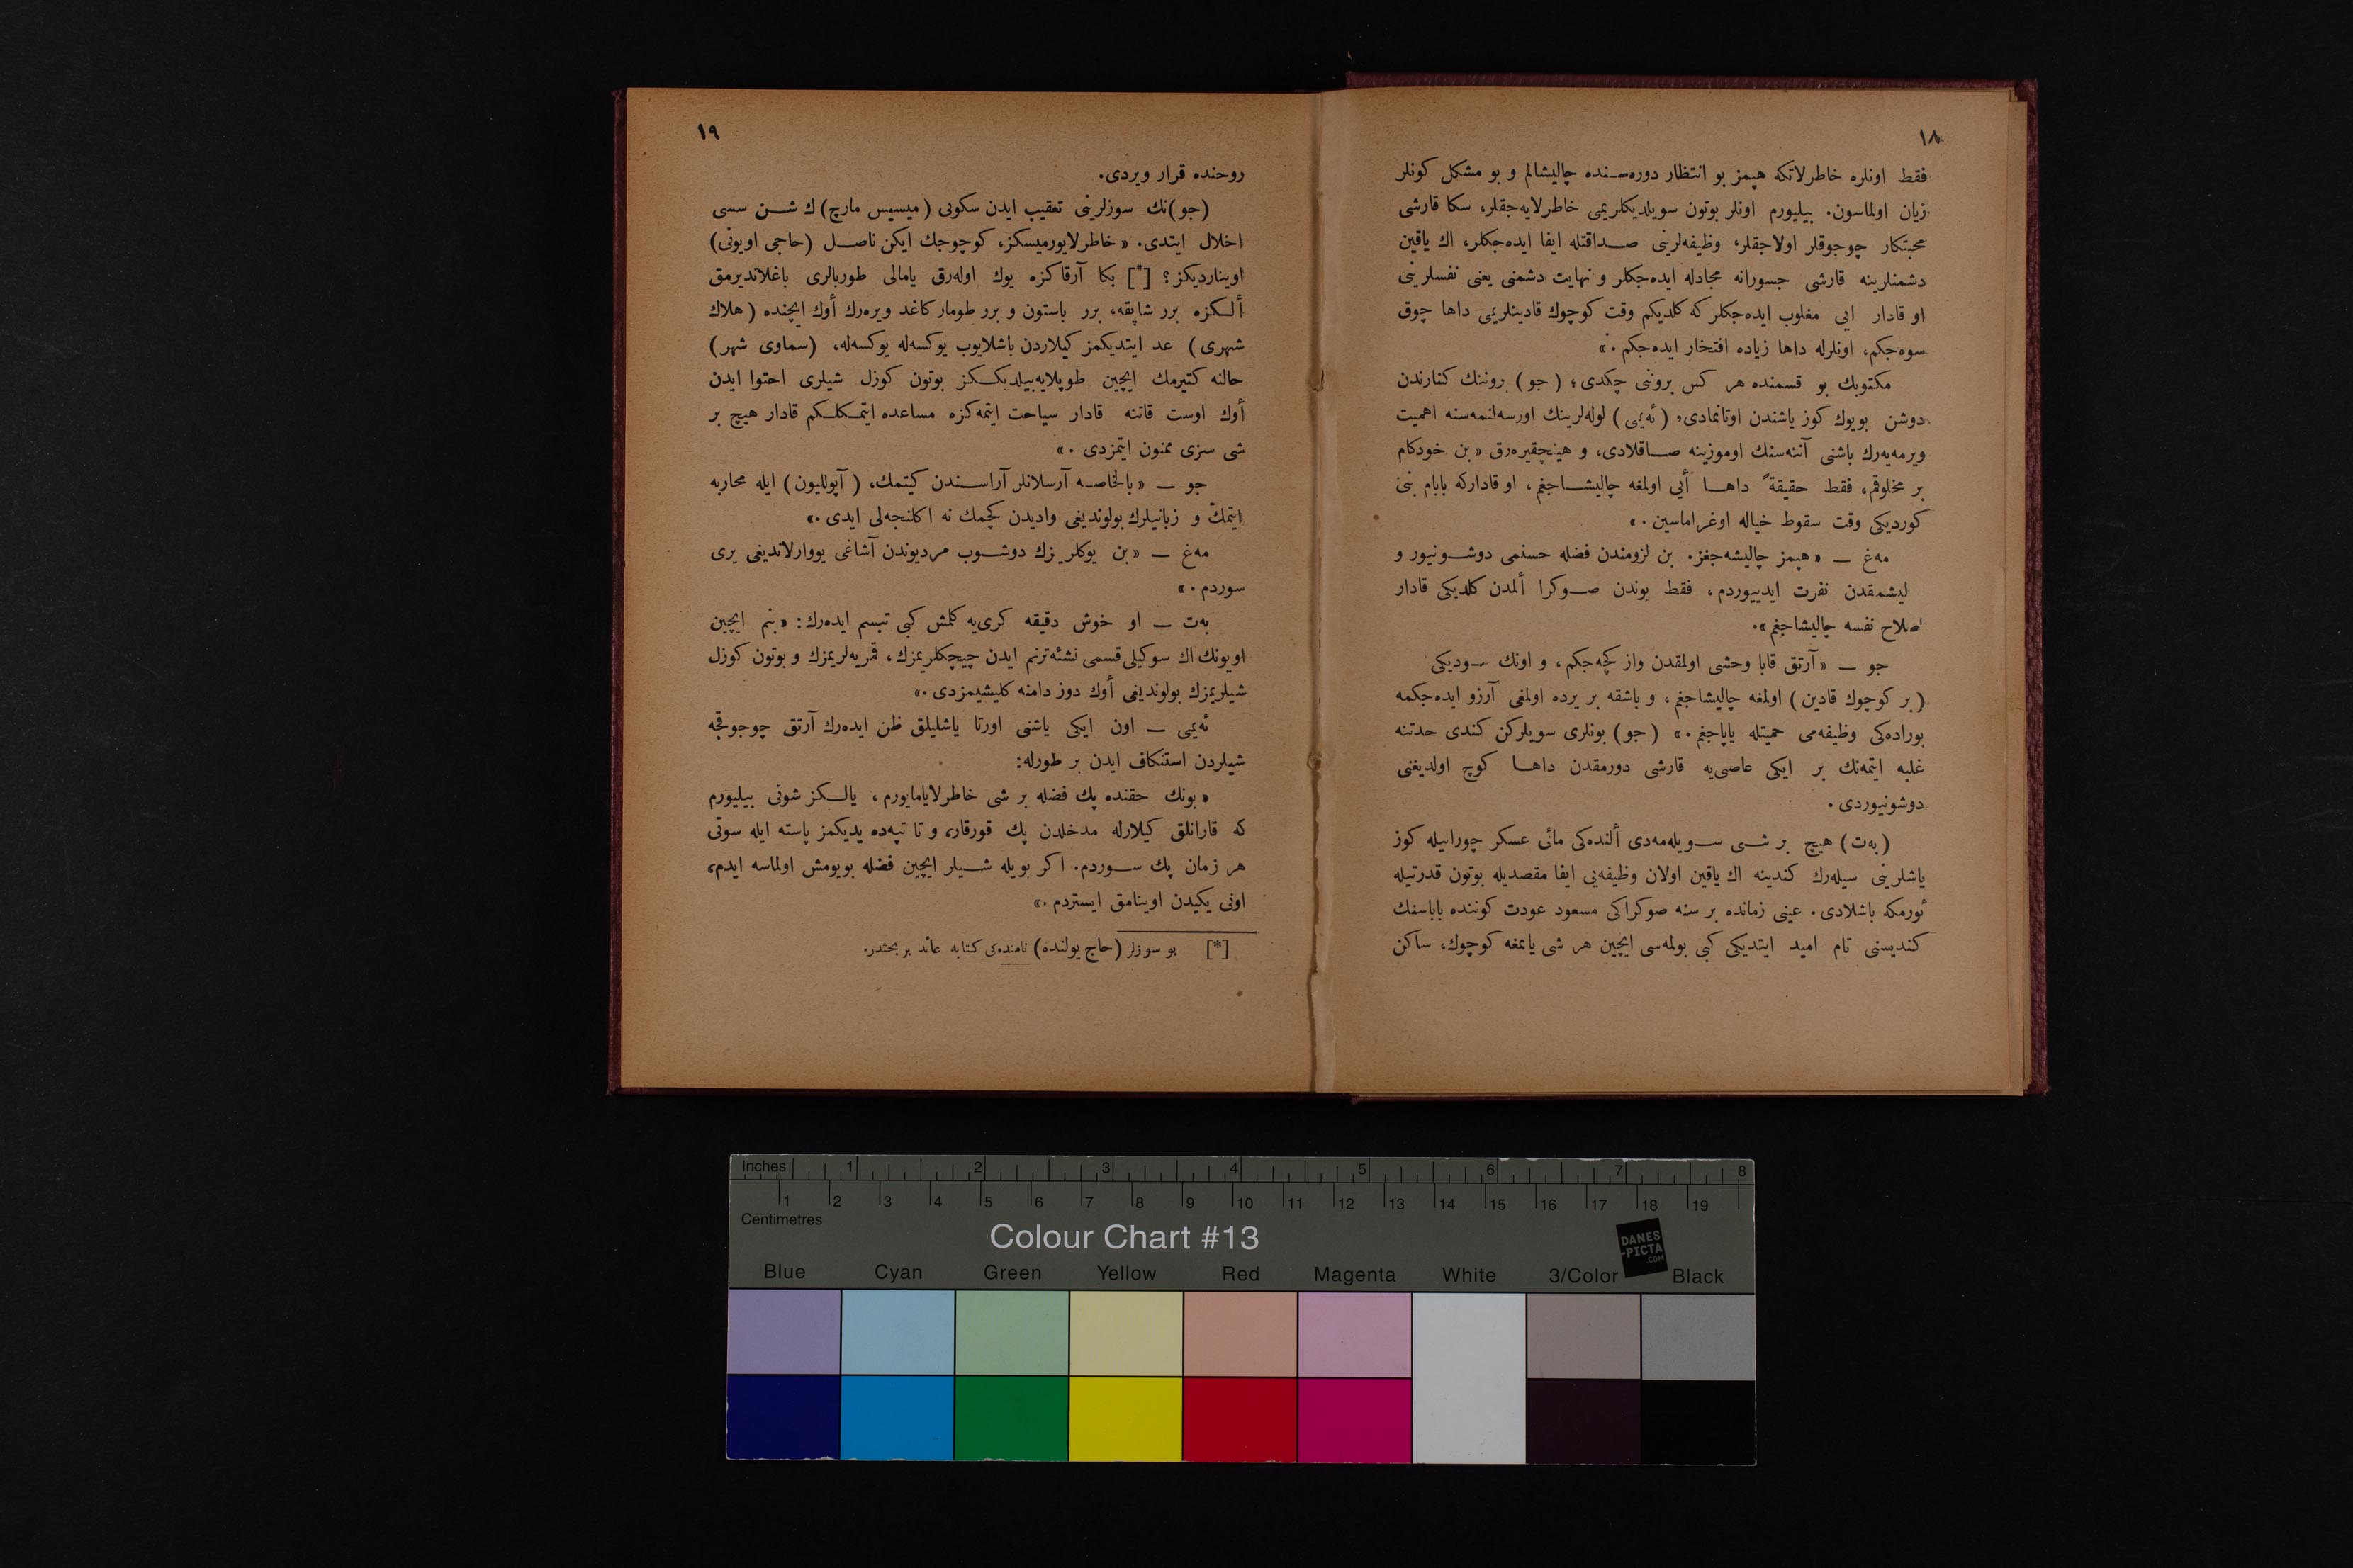 ١٨
فقط اونلره خاطرلاتكه هپمز بو انتظار دوره‌سنده چاليشالم و بو مشكل كونلر
زيان اولماسون. بيليورم اونلر بوتون سويلديكلريمى خاطرلايه‌جقلر، سكا قارشى
محبتكار چوجوقلر اولاجقلر، وظيفه‌لرينى صداقتله ايفا ايده‌جكلر، اك ياقين
دشمنلرينه قارشى جسورانه مجادله ايده‌جكلر و نهايت دشمنى يعنى نفسلرينى
او قادار ايى مغلوب ايده‌جكلر كه كلديكم وقت كوچوك قادينلريمى داها چوق
سوه‌جكم، اونلرله داها زياده افتخار ايده‌جكم.»
مكتوبك بو قسمنده هر كس بروننى چكدى؛ (جو) بروننك كنارندن
دوشن بويوك كوز ياشندن اوتانمادى، (ئه‌يمى) لوله‌لرينك اورسه‌لنمه‌سنه اهميت
ويرمه‌يه‌رك باشنى آننه‌سنك اوموزينه صاقلادى، و هيچقيره‌رق «بن خودكام
بر مخلوقم، فقط حقيقةً داها أيى اولمغه چاليشاجغم، او قاداركه بابام بنى
كورديكى وقت سقوط خياله اوغراماسين.»
مه‌غ — «هپمز چاليشه‌جغز. بن لزومندن فضله حسنمى دوشونيور و
ليشمقدن نفرت ايدييوردم، فقط بوندن صوكرا ألمدن كلديكى قادار
اصلاح نفسه چاليشاجغم».
جو — «آرتق قابا وحشى اولمقدن واز كچه‌جكم، و اونك سوديكى
(بر كوچوك قادين) اولمغه چاليشاجغم، و باشقه بر يرده اولمغى آرزو ايده‌جكمه
بوراده‌كى وظيفه‌مى حميتله ياپاجغم.» (جو) بونلرى سويلركن كندى حدتنه
غلبه ايتمه‌نك بر ايكى عاصى‌يه قارشى دورمقدن داها كوچ اولديغنى
دوشونيوردى.
(به‌ت) هيچ بر شى سويله‌مه‌دى ألنده‌كى مائى عسكر چورابيله كوز
ياشلرينى سيله‌رك كندينه اك ياقين اولان وظيفه‌يى ايفا مقصديله بوتون قدرتيله
ئورمكه باشلادى. عينى زمانده بر سنه صوكراكى مسعود عودت كوننده باباسنك
كنديسنى تام اميد ايتديكى كبى بولمه‌سى ايچين هر شى ياپمغه كوچوك، ساكن
١٩
روحنده قرار ويردى.
(جو)نك سوزلرينى تعقيب ايدن سكوتى (ميسيس مارچ)ك شن سسى
اخلال ايتدى. «خاطرلايورميسكز، كوچوجك ايكن ناصل (حاجى اويونى)
اوينارديكز؟ [*] بكا آرقاكزه يوك اوله‌رق يامالى طوربالرى باغلانديرمق
ألكزه برر شاپقه، برر باستون و برر طومار كاغد ويره‌رك أوك ايچنده (هلاك
شهرى) عد ايتديكمز كيلاردن باشلايوب يوكسه‌له يوكسه‌له، (سماوى شهر)
حالنه كتيرمك ايچين طوپلايه‌بيلديككز بوتون كوزل شيلرى احتوا ايدن
أوك اوست قاتنه قادار سياحت ايتمه‌كزه مساعده ايتمكلكم قادار هيچ بر
شى سزى ممنون ايتمزدى.»
جو — «بالخاصه آرسلانلر آراسندن كيتمك، (آپوللیون) ايله محاربه
ايتمك و زبانيلرك بولونديغى واديدن كچمك نه اكلنجه‌لى ايدى.»
مه‌غ — «بن يوكلريزك دوشوب مرديوندن آشاغى يووارلانديغى يرى
سوردم.»
به‌ت — او خوش دقيقه كرى‌يه كلمش كبى تبسم ايده‌رك: «بنم ايچين
اويونك اك سوكيلى قسمى نشئه ترنم ايدن چيچكلريمزك، قمريه‌لريمزك و بوتون كوزل
شيلريمزك بولونديغى أوك دوز دامنه كليشيمزدى.»
ئه‌يمى — اون ايكى ياشنى اورتا ياشليلق ظن ايده‌رك آرتق چوجوقجه
شيلردن استنكاف ايدن بر طورله:
«بونك حقنده پك فضله بر شى خاطرلايامايورم، يالكز شونى بيليورم
كه قارانلق كيلارله مدخلدن پك قورقار، و تا تپه‌ده يديكمز پاسته ايله سوتى
هر زمان پك سوردم. اكر بويله شيلر ايچين فضله بويومش اولماسه ايدم،
اونى يكيدن اوينامق ايستردم.»
[*] بو سوزلر (حاج يولنده) نامنده‌كى كتابه عائد بر بحثدر.
Inches 1 2 3 4 5 6 7 8
1 2 3 4 5 6 7 8 9 10 11 12 13 14 15 16 17 18 19
Centimetres
Colour Chart #13
DANES
-PICTA
.COM
Blue Cyan Green Yellow Red Magenta White 3/Color Black